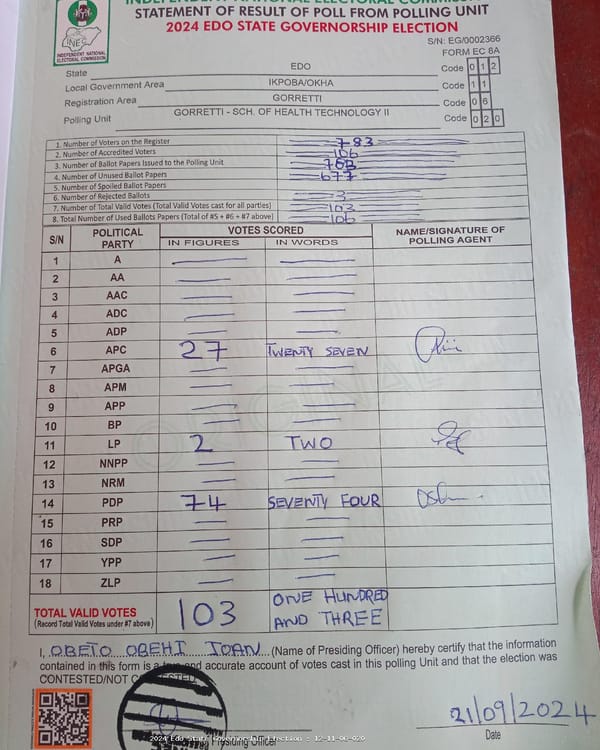 INDEPENDENT NATIONAL ELECTORAL COMMISSION
STATEMENT OF RESULT OF POLL FROM POLLING UNIT
2024 EDO STATE GOVERNORSHIP ELECTION
S/N: EG/0002366
FORM EC 8A
INEC
INDEPENDENT NATIONAL ELECTORAL COMMISSION
State EDO Code 0 1 2
Local Government Area IKPOBA/OKHA Code 1 1
Registration Area GORRETTI Code 0 6
Polling Unit GORRETTI - SCH. OF HEALTH TECHNOLOGY II Code 0 2 0
1. Number of Voters on the Register 783
2. Number of Accredited Voters 106
3. Number of Ballot Papers Issued to the Polling Unit
4. Number of Unused Ballot Papers 677
5. Number of Spoiled Ballot Papers
6. Number of Rejected Ballots 3
7. Number of Total Valid Votes (Total Valid Votes cast for all parties) 103
8. Total Number of Used Ballots Papers (Total of #5 + #6 + #7 above) 106
S/N POLITICAL PARTY VOTES SCORED NAME/SIGNATURE OF POLLING AGENT
IN FIGURES IN WORDS
1 A
2 AA
3 AAC
4 ADC
5 ADP
6 APC 27 TWENTY SEVEN
7 APGA
8 APM
9 APP
10 BP
11 LP 2 TWO
12 NNPP
13 NRM
14 PDP 74 SEVENTY FOUR
15 PRP
16 SDP
17 YPP
18 ZLP
TOTAL VALID VOTES 103 ONE HUNDRED
(Record Total Valid Votes under #7 above) AND THREE
ORIGINAL
I, OBETO OBEHI JOAN (Name of Presiding Officer) hereby certify that the information
contained in this form is a true and accurate account of votes cast in this polling Unit and that the election was
CONTESTED/NOT CONTESTED.
21/09/2024
2024 Edo State Governorship Election : 12-11-06-020
Presiding Officer Date